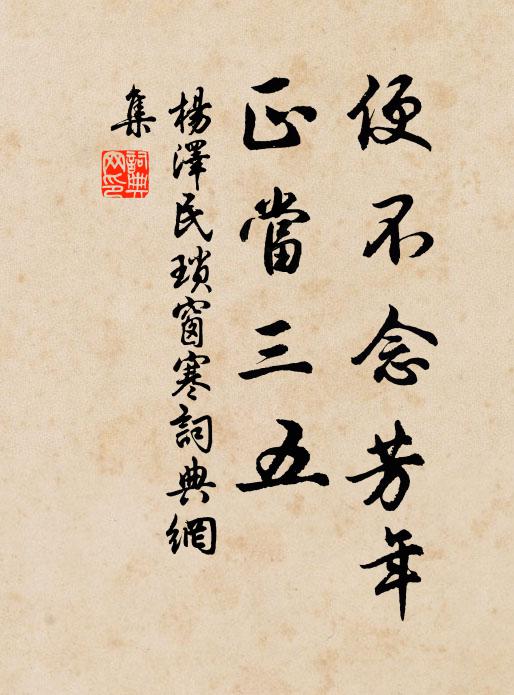 便不念芳年
正當三五
楊澤民瑣窗寒詞典網
集
詞典
网印